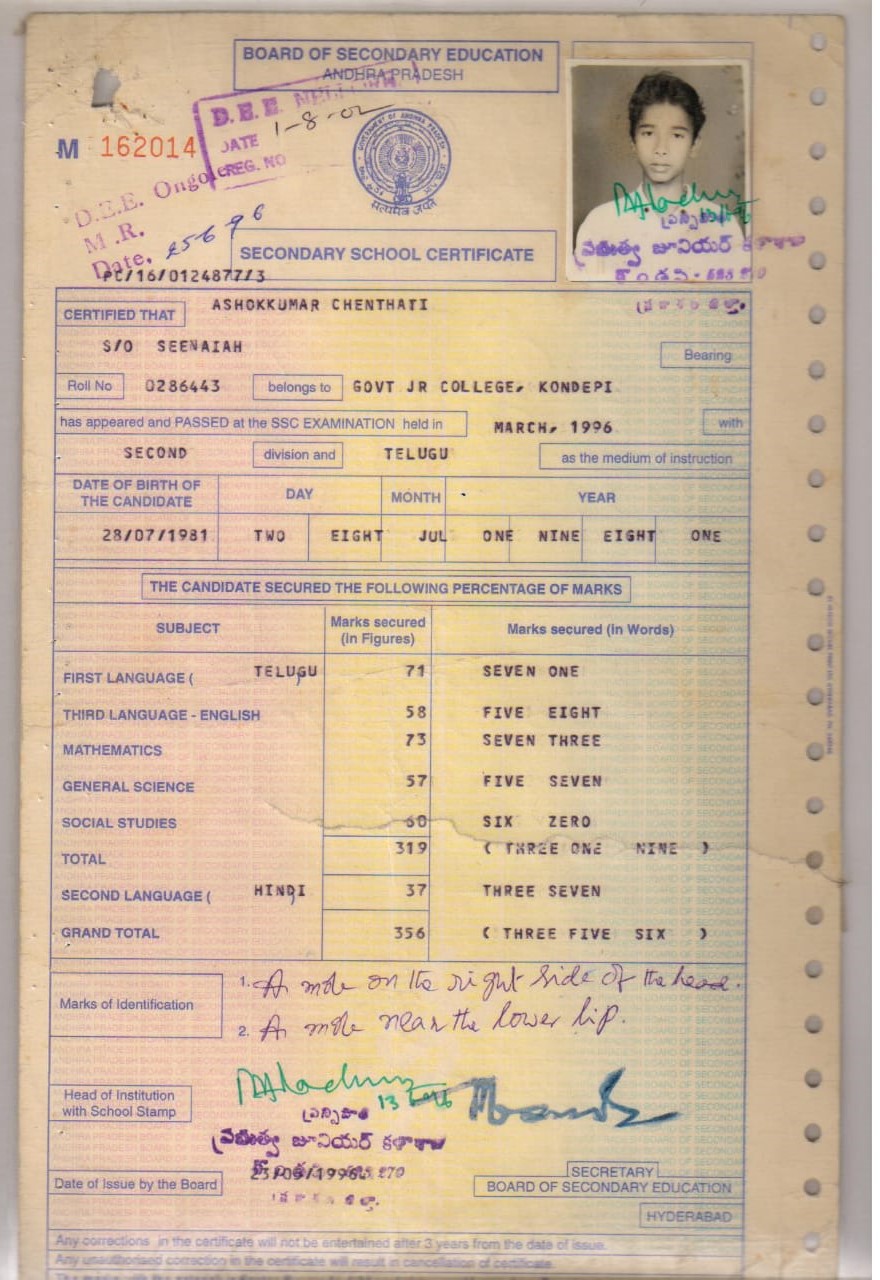 BOARD OF SECONDARY EDUCATION
ANDHRA PRADESH
D.E.E. NELLORE
DATE 1-8-02
REG. NO
M 162014
सत्यमेव जयते
D.E.E. Ongole
M.R.
Date, 25 6 96
SECONDARY SCHOOL CERTIFICATE
PC/16/0124877/3
CERTIFIED THAT ASHOKKUMAR CHENTHATI
S/O SEENAIAH
Bearing
Roll No 0286443 belongs to GOVT JR COLLEGE, KONDEPI
has appeared and PASSED at the SSC EXAMINATION held in MARCH, 1996 with
SECOND division and TELUGU as the medium of instruction
DATE OF BIRTH OF THE CANDIDATE DAY MONTH YEAR
28/07/1981 TWO EIGHT JUL ONE NINE EIGHT ONE
THE CANDIDATE SECURED THE FOLLOWING PERCENTAGE OF MARKS
SUBJECT Marks secured (in Figures) Marks secured (in Words)
FIRST LANGUAGE ( TELUGU ) 71 SEVEN ONE
THIRD LANGUAGE - ENGLISH 58 FIVE EIGHT
MATHEMATICS 73 SEVEN THREE
GENERAL SCIENCE 57 FIVE SEVEN
SOCIAL STUDIES 60 SIX ZERO
TOTAL 319 ( THREE ONE NINE )
SECOND LANGUAGE ( HINDI ) 37 THREE SEVEN
GRAND TOTAL 356 ( THREE FIVE SIX )
Marks of Identification
1. A mole on the right side of the head.
2. A mole near the lower lip.
Head of Institution with School Stamp
ప్రభుత్వ జూనియర్ కళాశాల
Date of Issue by the Board 23/05/1996
SECRETARY
BOARD OF SECONDARY EDUCATION
HYDERABAD
Any corrections in the certificate will not be entertained after 3 years from the date of issue.
Any unauthorised correction in the certificate will result in cancellation of certificate.